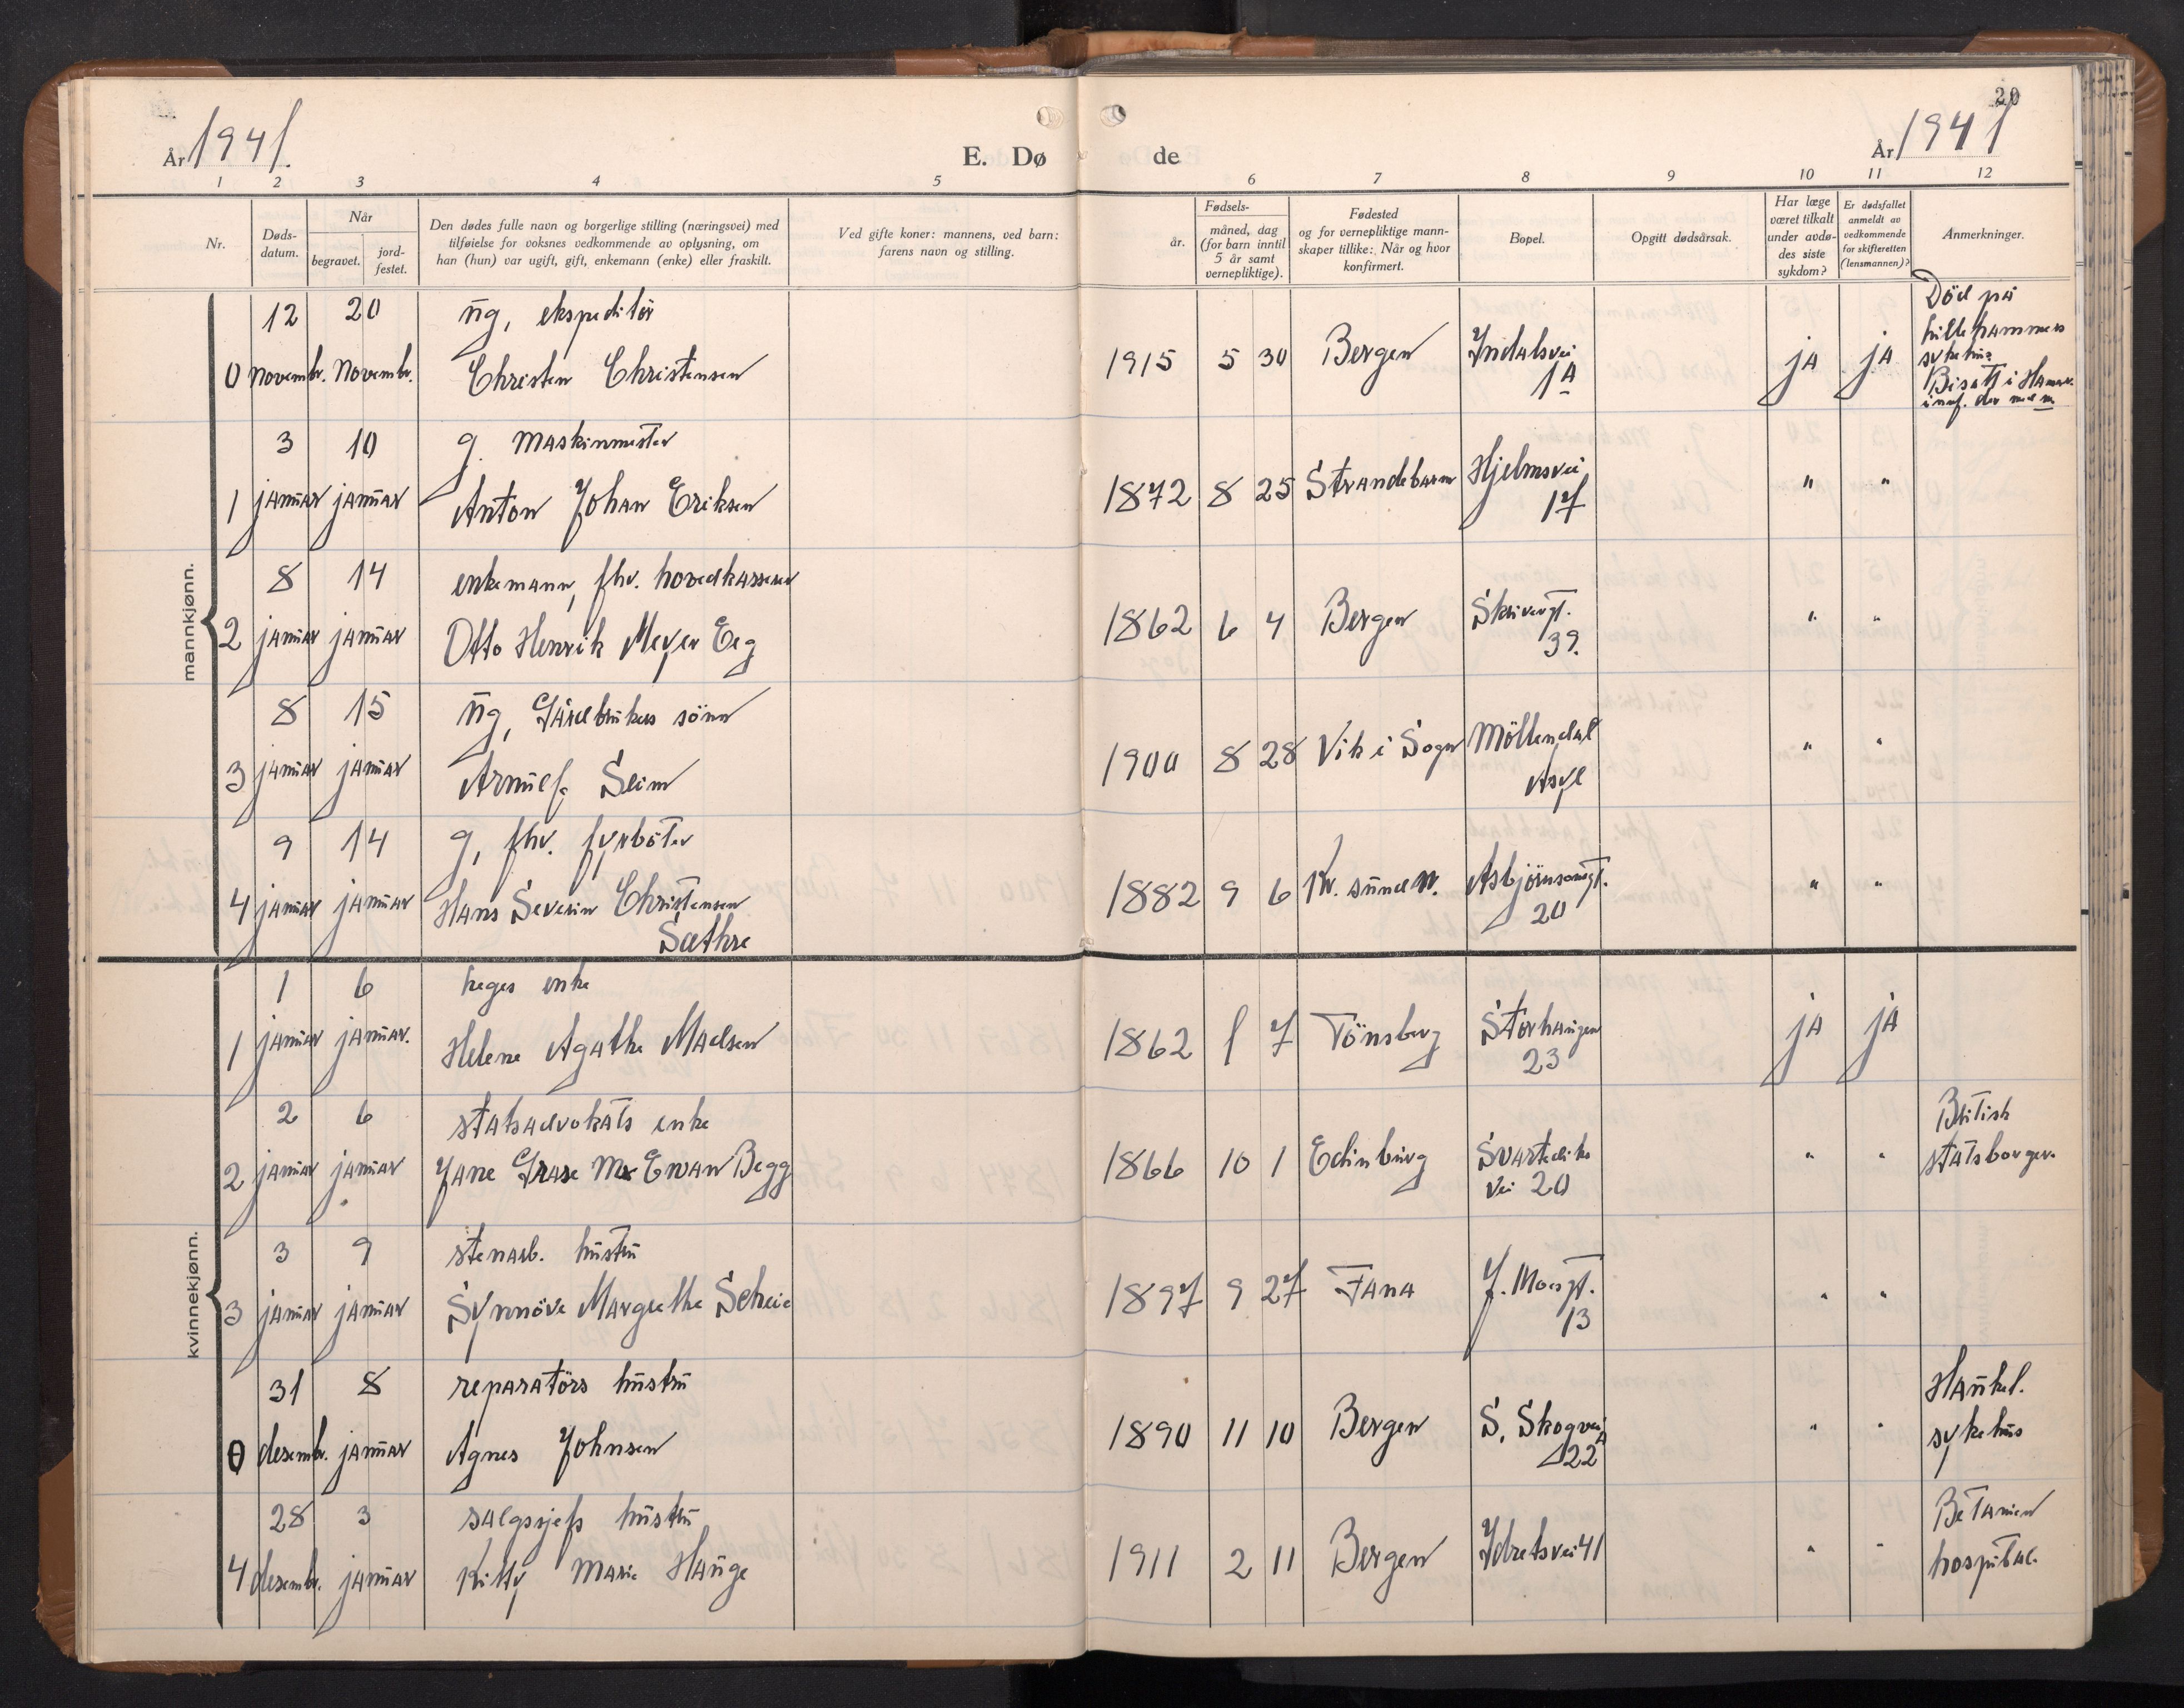 20
År 1941. E. Dø de År 1941
1 2 3 4 5 6 7 8 9 10 11 12
Nr.
Døds-
datum.
Når
begravet.
jord-
festet.
Den dødes fulle navn og borgerlige stilling (næringsvei) med
tilføielse for voksnes vedkommende av oplysning, om
han (hun) var ugift, gift, enkemann (enke) eller fraskilt.
Ved gifte koner: mannens, ved barn:
farens navn og stilling.
Fødsels-
år.
måned, dag
(for barn inntil
5 år samt
vernepliktige).
Fødested
og for vernepliktige mann-
skaper tillike: Når og hvor
konfirmert.
Bopel.
Opgitt dødsårsak.
Har læge
været tilkalt
under avdø-
des siste
sykdom?
Er dødsfallet
anmeldt av
vedkommende
for skifteretten
(lensmannen)?
Anmerkninger.
mannkjønn.
12 20 ug, ekspeditör
0 novembr. novembr. Christen Christensen 1915 5 30 Bergen Indalsvei
1A
ja ja
Död på
Lillehammers
sykehus
Bisatt i Hamar
3 10 g. maskinmester
1 januar januar Anton Johan Eriksen 1872 8 25 Strandebarm Hjelmsvei
17
" "
8 14 enkemann, fhv. hovedkasserer
2 januar januar Otto Henrik Meyer Eeg 1862 6 4 Bergen Skivergt.
39.
" "
8 15 ug, Gårdbrukers sönn
3 januar januar Arnulf Seim 1900 8 28 Vik i Sogn Möllendal
Asyl
" "
9 14 g, fhv. fyrböter
4 januar januar Hans Severin Christensen
Sæthre
1882 9 6 Kr. sund N. Asbjörnsensgt.
20
" "
kvinnekjønn.
1 6 leges enke
1 januar januar. Helene Agathe Madsen 1862 1 7 Tönsberg Storhaugen
23
ja ja
2 6 statsadvokats enke
2 januar januar Jane Grase Mc Ewan Begg 1866 10 1 Edinburg Svartediks
vei 20
" "
Britisk
statsborger.
3 9 stenarb. hustru
3 januar januar Synnöve Margrethe Scheie 1897 9 27 Fana J. Moesgt.
13
" "
31 8 reparatörs hustru
0 desembr. januar Agnes Johnsen 1890 11 10 Bergen S. Skogvei
22A
" "
Haukel.
sykehus
28 3 salgssjefs hustru
4 desembr. januar Kitty Marie Hauge 1911 2 11 Bergen Idretsvei 41
" "
Betanien
hospital.